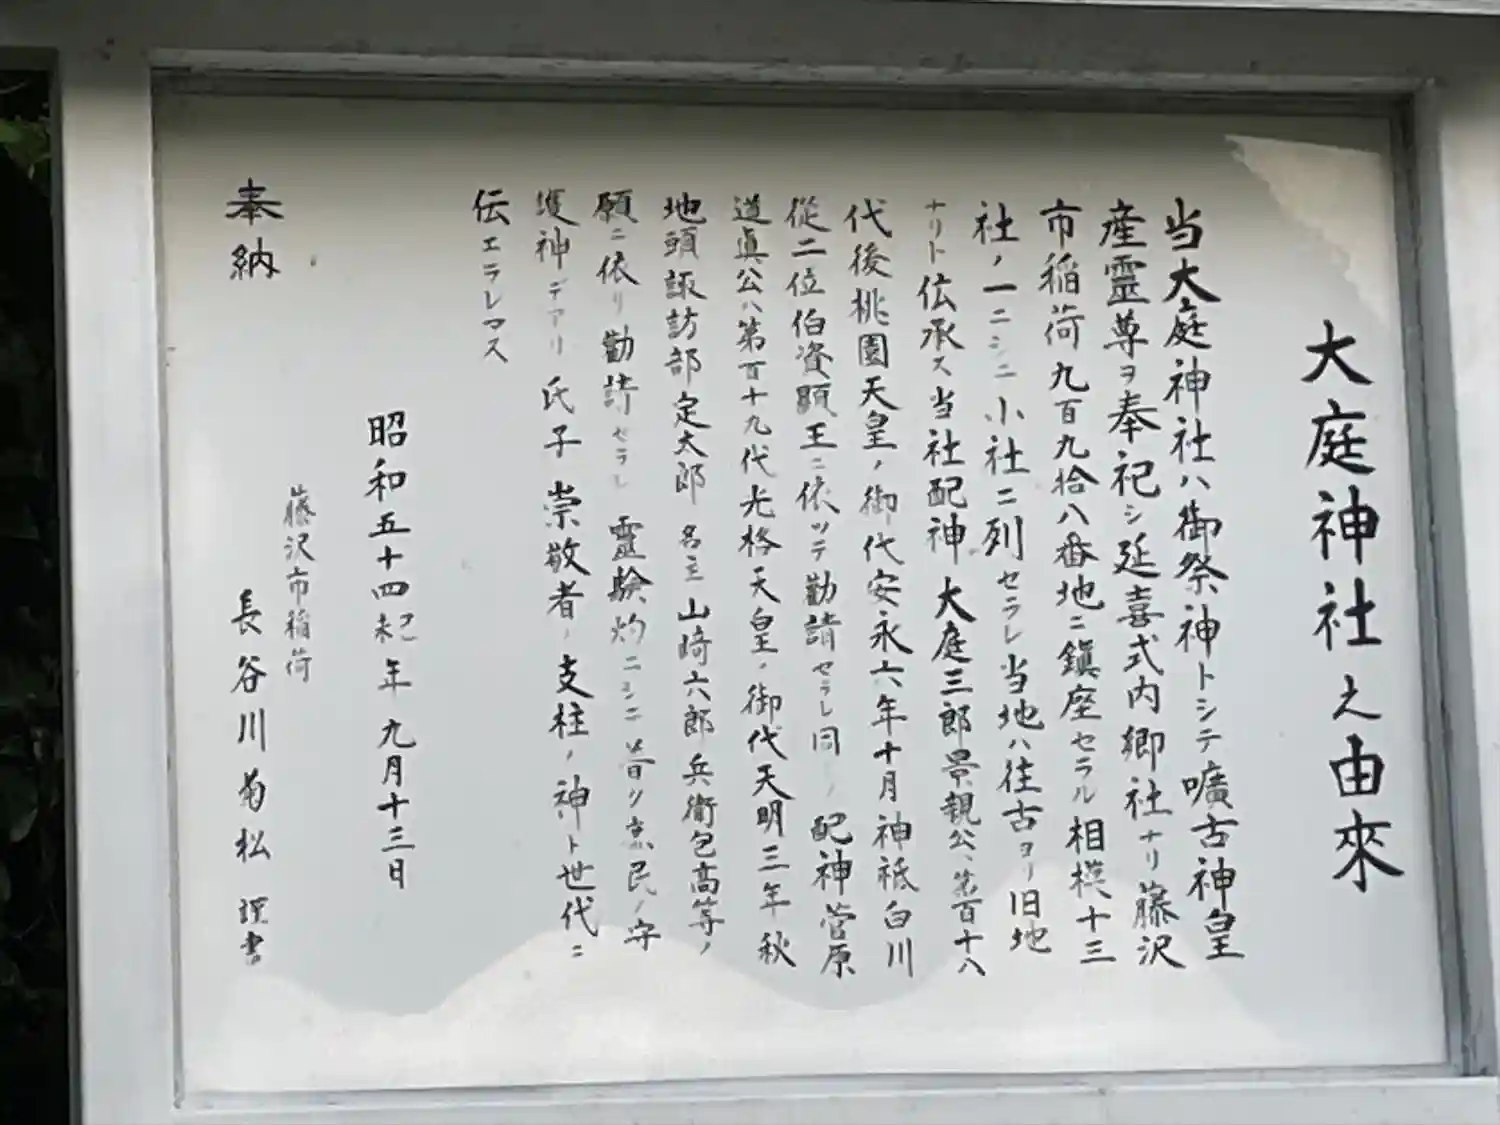 大庭神社之由來
当大庭神社ハ御祭神トシテ曠古神皇
産靈尊ヲ奉祀シ延喜式内郷社ナリ藤沢
市稲荷九百九拾八番地ニ鎮座セラル相模十三
社ノ一ニシニ小社ニ列セラレ当地ハ往古ヨリ旧地
ナリト伝承ス当社配神大庭三郎景親公、第百十八
代後桃園天皇ノ御代安永六年十月神祇白川
從二位伯資顕王ニ依ツテ勸請セラレ同ノ配神菅原
道眞公ハ第百十九代光格天皇ノ御代天明三年秋
地頭諏訪部定太郎名主山﨑六郎兵衛包高等ノ
願ニ依リ勸請セラレ靈験灼ニシニ昔ヨリ庶民ノ守
護神デアリ氏子崇敬者ノ支柱ノ神ト世代ニ
伝エラレマス
昭和五十四己未年九月十三日
藤沢市稲荷
長谷川菊松謹書
奉納